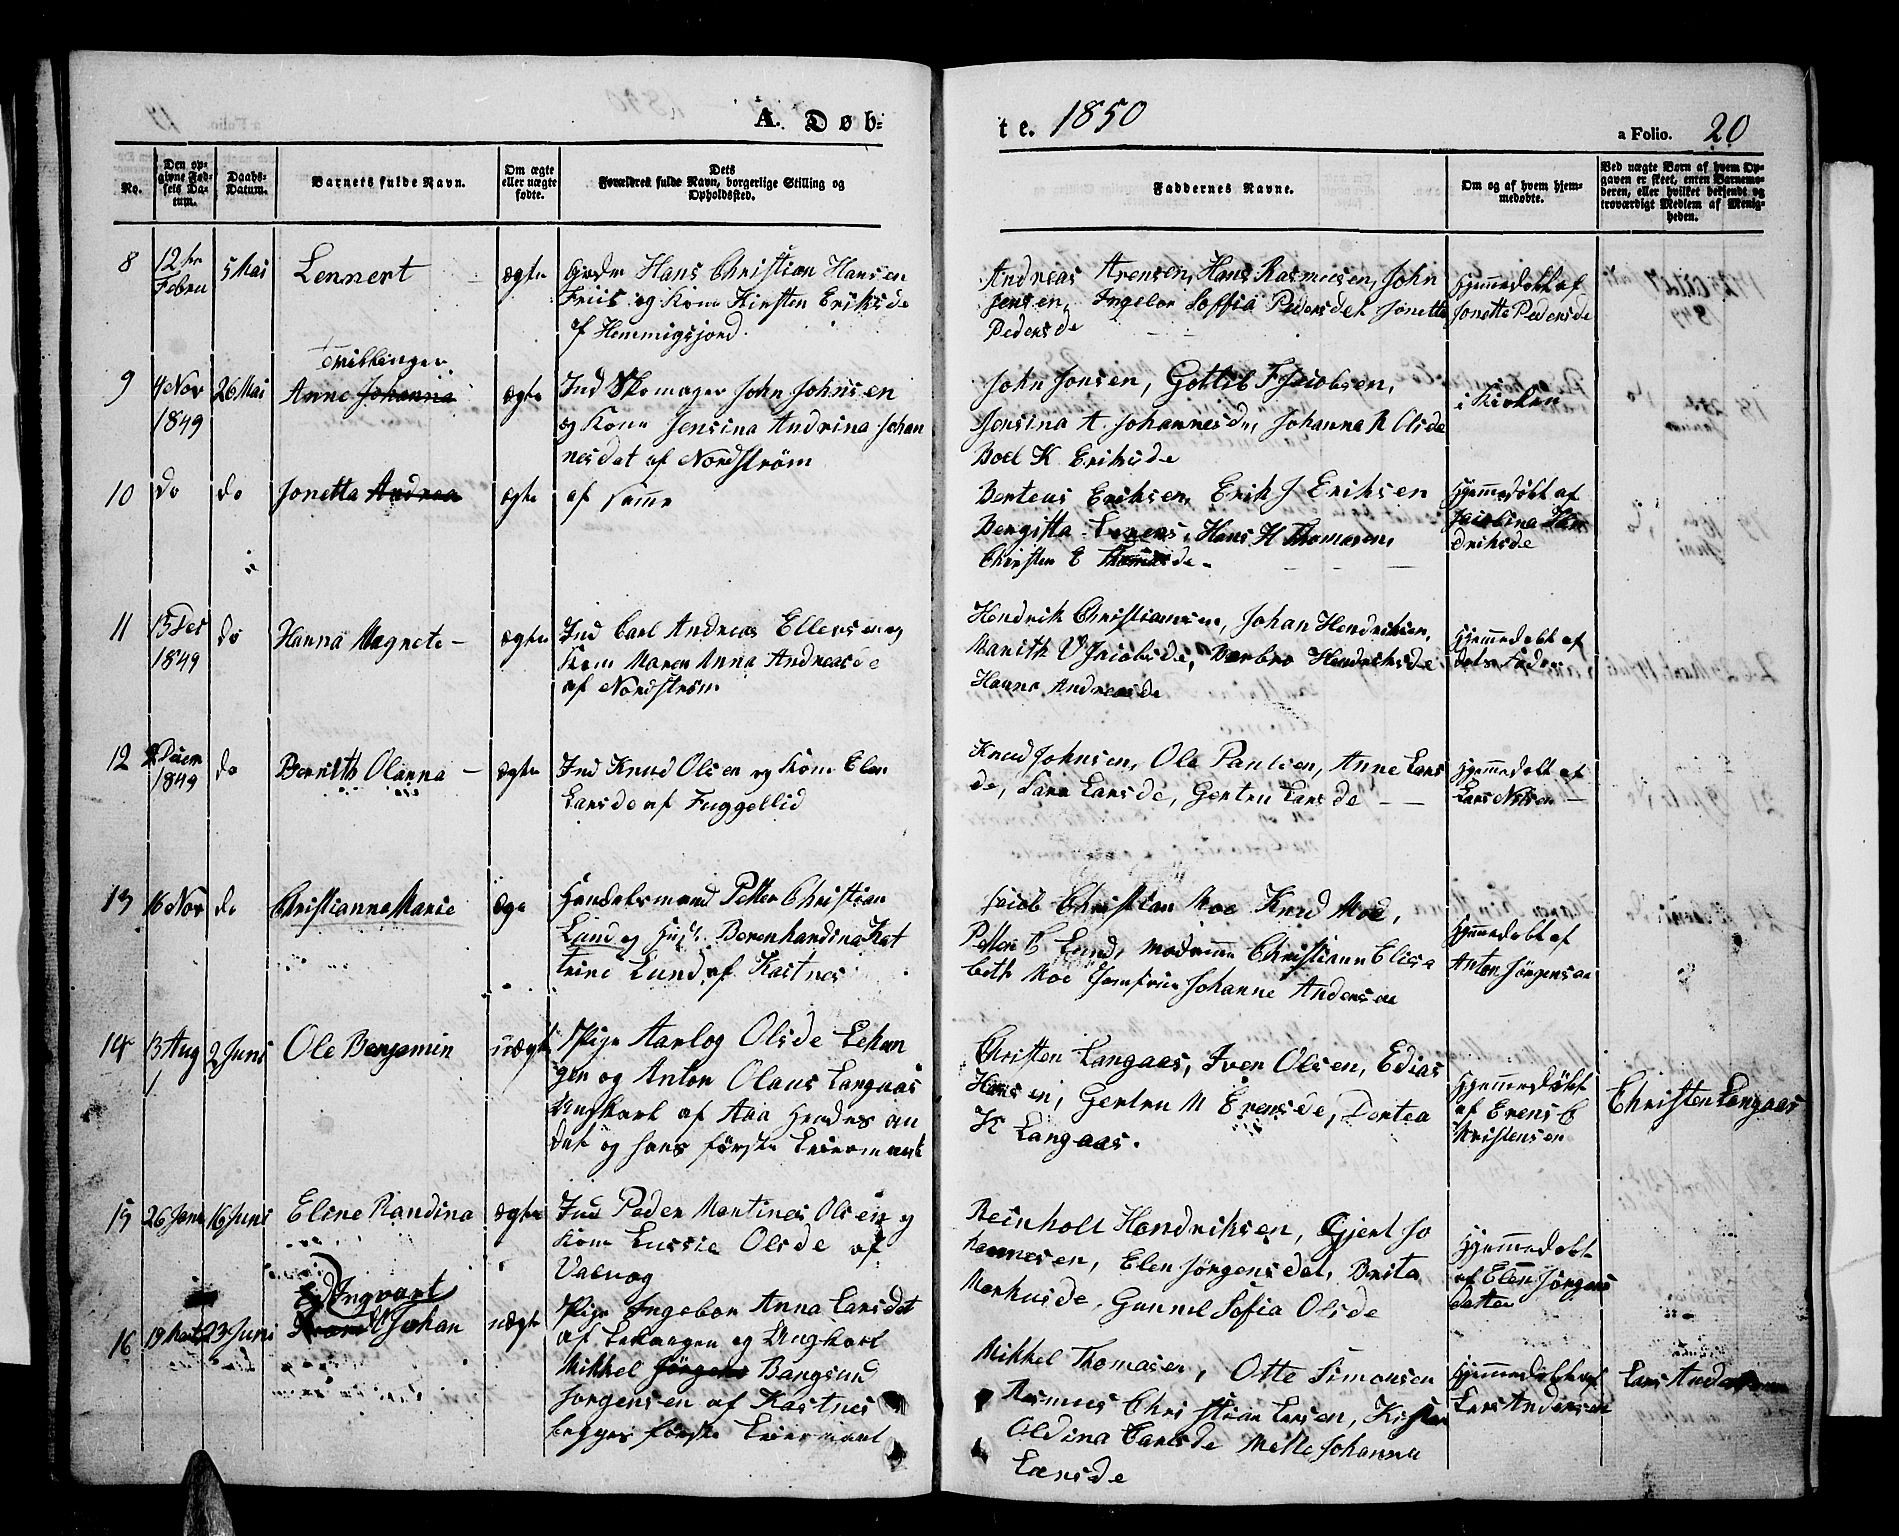 A. Døb-
te. 1850
a Folio. 20
No.
Den op-
givne Fød-
sels Da-
tum.
Daabs-
Datum.
Barnets fulde Navn.
Om ægte
eller uægte
fødte.
Dets
Forældres fulde Navn, borgerlige Stilling og
Opholdssted.
Faddernes Navne.
Om og af hvem hjem-
medøbte.
Ved uægte Børn af hvem Op-
gaven er skeet, enten Barnemo-
deren, eller hvilket bekjendt og
troværdigt Medlem af Menig-
heden.
8
12te
Febru
5 Mai
Lennert
ægte
Hans Christian Hansen
Friis og Kone Kirsten Eriksde
af Hemmigsjord
Andreas Arensen, Hans Rasmusen, John
Jensen, Ingebor Soffia Pedersdet Jonetta
Pedersde
Hjemmedøbt af
Jonetta Pedersde
9
4 Nov
1849
26 Mai
Tvillinger
Anne Johanna
ægte
Ind Skomager John Johnsen
og Kone Jensina Andrina Johan
nesdet af Nordstrøm
John Jonsen, Gotlib F Jacobsen,
Jensina A. Johannesde, Johanna R Olsde
Boel K. Eriksde
i Kirken
10
do
do
Jonetta Andrea
ægte
af samme
Berteus Eriksen, Erik J Eriksen
Bergitta Larens, Hans H Thomasen,
Christen E Thomasde
Hjemmedøbt af
Jacobina Hen
driksde
11
15 Dec
1849
do
Hanna Magnete
ægte
Ind Carl Andreas Ellersen og
Kone Maren Anna Andreasde
af Nordstrøm
Hendrik Christiansen, Johan Hendriksen,
Marith V Jacobsde, Barbro Hendriksde
Hanna Andreasde
Hjemmedøbt af
dets Fader
12
Decem
1849
do
Bernith Olanna
ægte
Ind Knud Olsen og Kone Elen
Larsde af Fuggellid
Knud Johnsen, Ole Paulsen, Anne Lars
de, Sara Larsde, Gertru Larsde
Hjemmedøbt af
Lars Nilsen
13
16 Nov
do
Christianna Marie
ægte
Handelsmand Petter Christian
Lund og Hust. Berenhardina Kat
trine Lund af Kastnes
Jacob Christian Moe Knud Moe,
Petter C Lund, Madame Christianne Elisa
beth Moe Jomfrue Johanne Andersen
Hjemmedøbt af
Anton Jørgensen
14
13 Aug
2 Juni
Ole Benjamin
uægte
Pige Aarlog Olsde Lekan
gen og Anton Olaus Langaas
Ungkarl af Aaa Hendes an
det og hans første Leiermaal
Christen Langaas, Iver Olsen, Edias
Hansen, Gertru M Erensde, Dortea
K Langaas.
Hjemmedøbt
af Erens C
Kristensen
Christen Langaas
15
26 Janu
16 Juni
Eline Randina
ægte
Ind Peder Martines Olsen og
Kone Lussie Olsde af
Valvog
Reinholt Hendriksen, Gjert Jo
hannesen, Elen Jørgensdet, Berita
Markusde, Gunnel Sofia Olsde
Hjemmedøbt
af Elen Jørgens
datter
16
19 Marts
23 Juni
Ingvart
Johan
uægte
Pige Ingebor Anna Larsdet
af Lekangen og Ungkarl
Mikkel Jørgens Bangsund
Jørgensen af Kastnes
begges første Leiermaal
Mikkel Thomasen, Otte Simonsen
Rasmus Christian Larsen, Kisten
Oldina Carlsde Mette Johanna
Larsde
Hjemmedøbt af
Lars Andersen
Lars Andersen